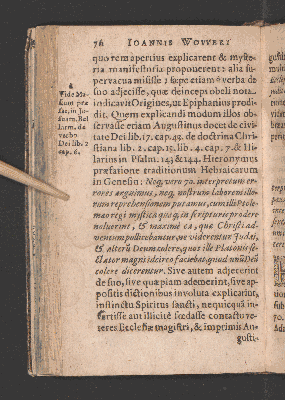 76 IOANNIS WOWERI
quo rem apertius explicarent & myste-
ria manifestiùs proponerent: alia su-
pervacua misisse: sæpe etiam verba de
suo adjecisse, quæ deinceps obeli nota
indicavit Origines, ut Epiphanius prodi-
dit. Quem explicandi modum illos ob-
servasse etiam Augustinus docet de civi-
tate Dei lib. 17. cap. 43. de doctrina Chri-
stiana lib. 2. cap. 15. lib. 4. cap. 7. & Hi-
larius in Psalm. 143 & 144. Hieronymus
præfatione traditionum Hebraicarum
in Genesin: Neq, vero 70. interpretum er-
rores arguimus, neq, nostrum laborem illo-
rum reprehensionem putamus, cum illi Ptole-
mæo regi mystica quæq, in scripturis prodere
noluerint, & maxime ea, quæ Christi ad-
ventum pollicebantur, ne viderentur Judæi,
& alterũ Deum colere, quos ille Platonis se-
ctator magni idcirco faciebat, quod unũ Deũ
colere dicerentur. Sive autem adjecerint
de suo, sive quæ piam ademerint, sive ap-
positis dictionibus involuta explicarint,
instinctu Spiritus sancti,
teres Ecclesiæ magistri, & imprimis Au-
gusti-
a
Vide Ma-
sium præ-
fat. in Jo-
suam. Bel
larm. de
verbo
Dei lib. 2
cap. 6.